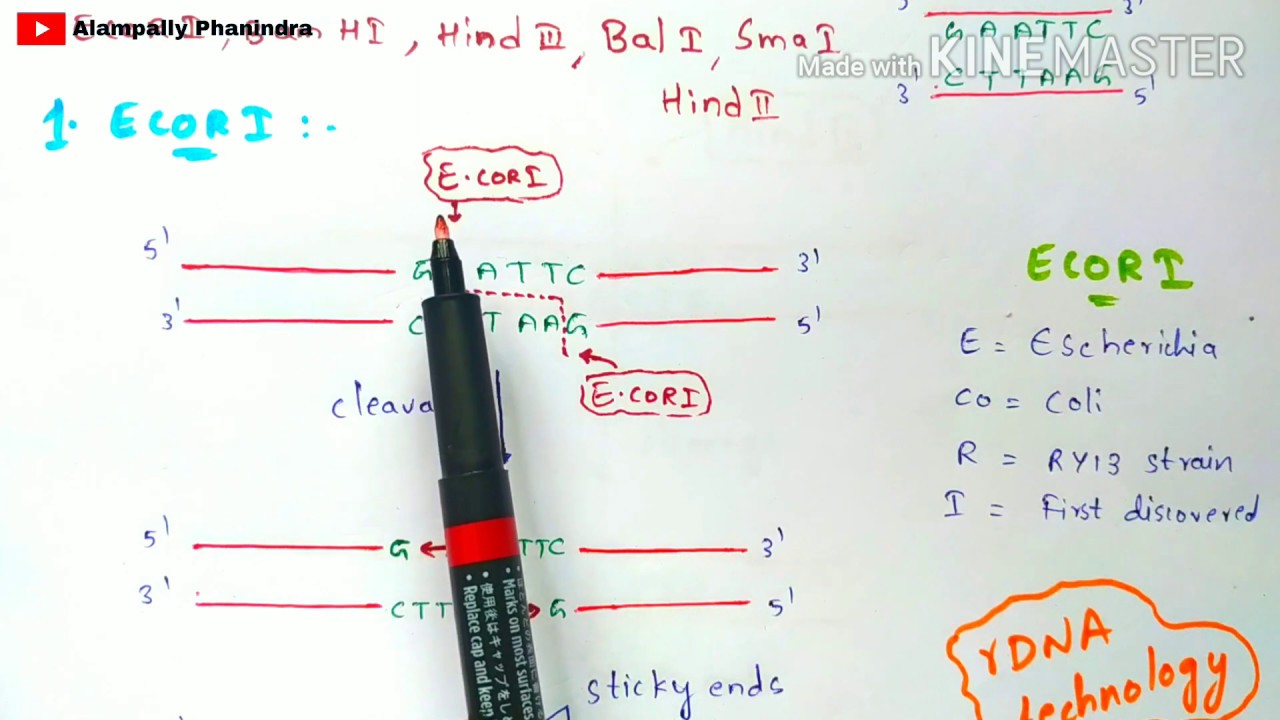 Alampally Phanindra
EcoRI, Bam HI, Hind III, Bal I, Sma I
Hind II
3'
G A A T T C
Made with KINEMASTER
3' C T T A A G 5'
1. ECORI :-
E.CORI
5' G ATTC 3'
3' C T AAG 5'
E.CORI
cleava
ECORI
E = Escherichia
CO = Coli
R = RY13 strain
I = First discovered
5' G TTC 3'
3' CTT G 5'
• Marks on most surfaces
• 使用後はキャップをし
• Replace cap and keep
sticky ends
rDNA
technology